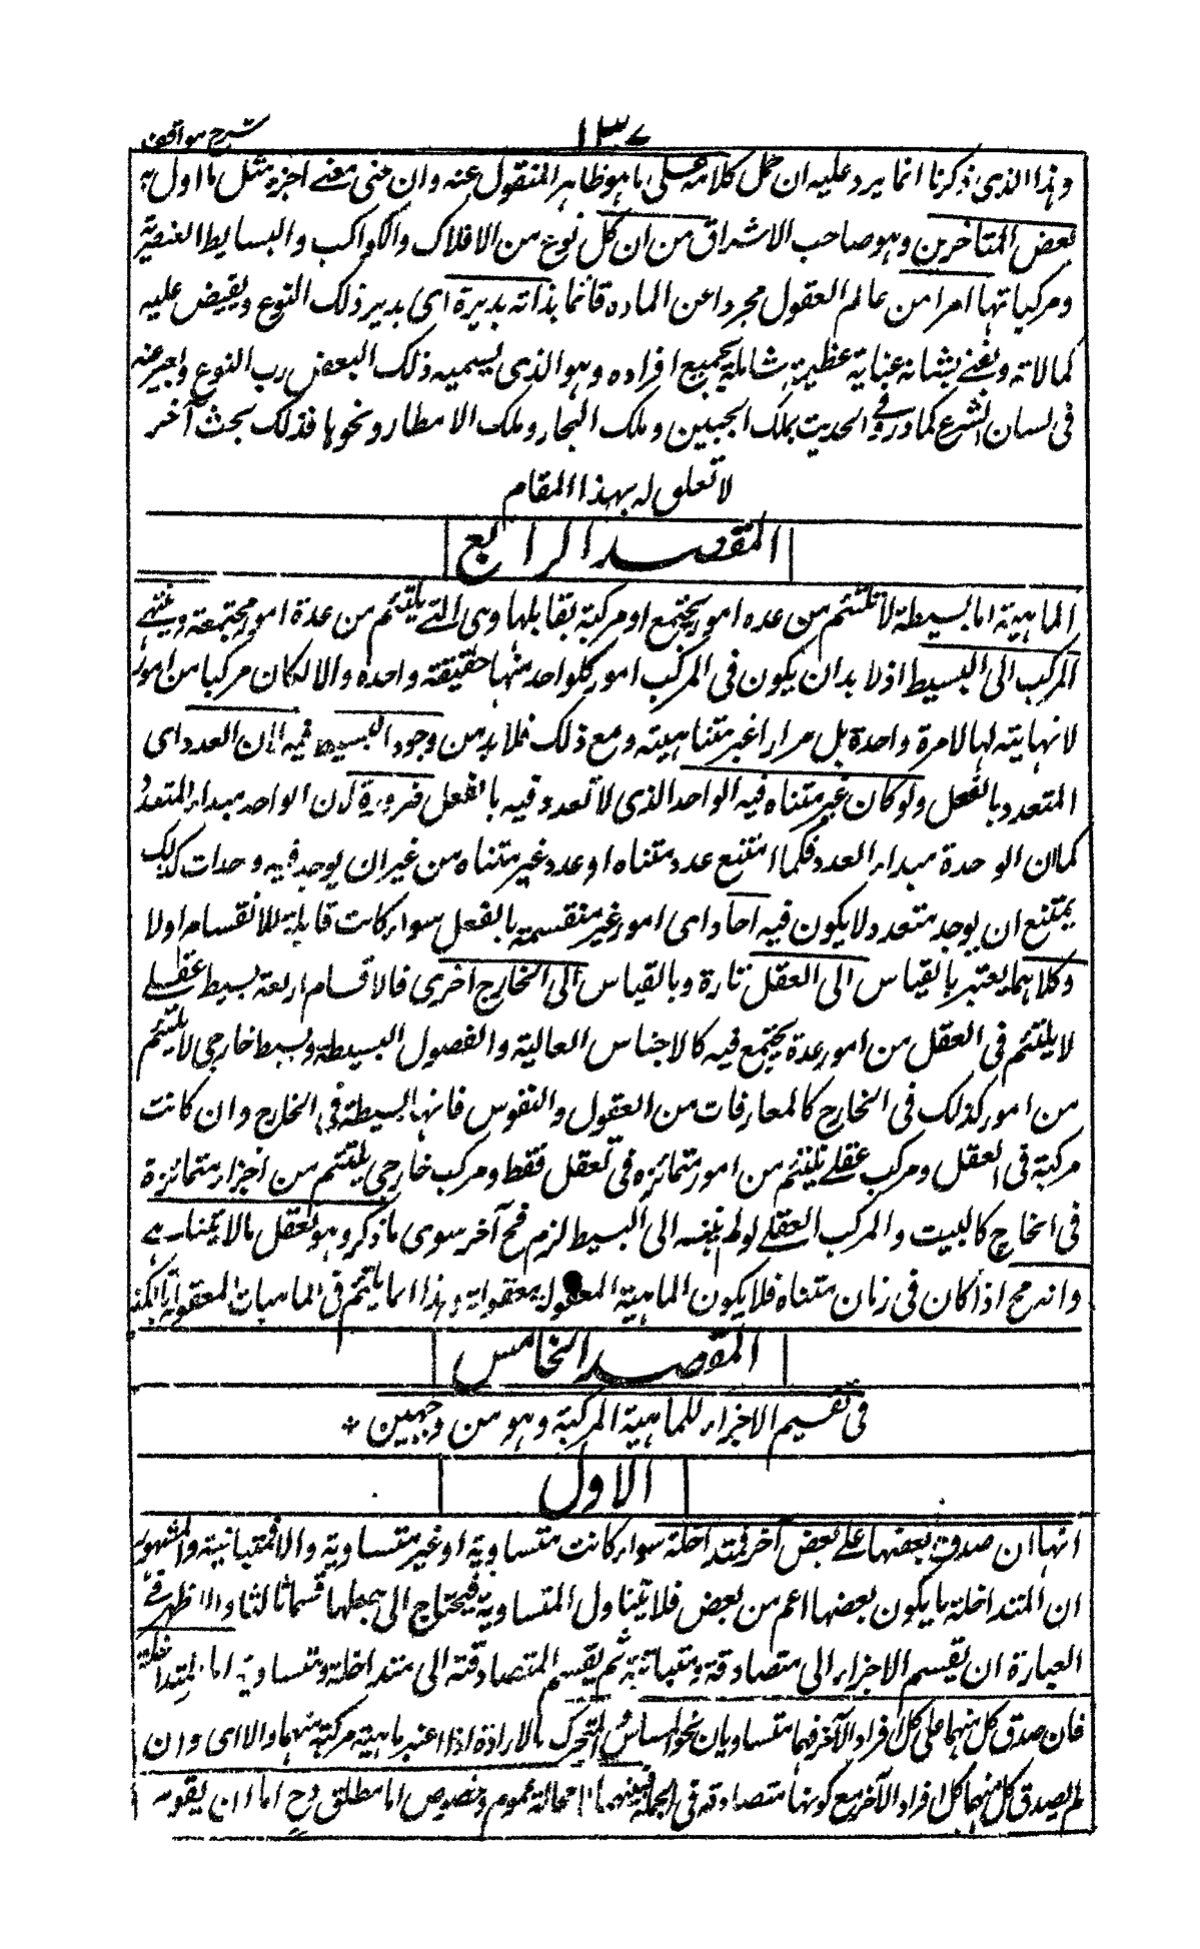 شرح مواقف
۱۳۷
وهذا الذى ذكرنا انما يرد عليه ان حمل كلامه على ما هو ظاهر المنقول عنه وان عنى معنى اخر مثل ما اوله به
بعض المتاخرين وهو صاحب الاشراق من ان كل نوع من الافلاك والكواكب والبسايط العنصرية
ومركباتها امرا من عالم العقول مجردا عن الماده قائما بذاته يدبره اى يدبر ذلك النوع ويفيض عليه
كمالاته ويعنى بشانه عناية عظيمة شاملة لجميع افراده وهو الذى يسميه ذلك البعض رب النوع ويعبر عنه
فى لسان الشرع كما ورد فى الحديث بملك الجبين وملك البحار وملك الامطار ونحوها فذلك بحث آخر
لا تعلق له بهذا المقام
المقصد الرابع
الماهية اما بسيطة لا تلتئم من عده امور يجتمع او مركبة تقابلها وهى التى يلتئم من عدة امور مجتمعة وينتهى
المركب الى البسيط اذ لا بد ان يكون فى المركب امور كلواحد منها حقيقة واحده والا لكان مركبا من امور
لا نهاية لها لا مرة واحدة بل مرارا غير متناهية ومع ذلك فلا بد من وجود البسيط فيه لان العدد اى
المتعدد بالفعل ولو كان غير متناه فيه الواحد الذى لا تعدد فيه بالفعل ضرورة لان الواحد مبداء المتعدد
كما ان الوحدة مبداء العدد فكما امتنع عدد متناه او عدد غير متناه من غير ان يوجد فيه وحدات كذلك
يمتنع ان يوجد متعدد لا يكون فيه احاد اى امور غير منقسمة بالفعل سواء كانت قابلة للانقسام او لا
وكلاهما يعتبر بالقياس الى العقل تارة وبالقياس الى الخارج اخرى فالاقسام اربعة بسيط عقلى
لا يلتئم فى العقل من امور عدة يجتمع فيه كالاجناس العالية والفصول البسيطة وبسيط خارجى لا يلتئم
من امور كذلك فى الخارج كالمفارقات من العقول والنفوس فانها بسيطة فى الخارج وان كانت
مركبة فى العقل ومركب عقلى يلتئم من امور متمائزه فى تعقل فقط ومركب خارجى يلتئم من اجزاء متمائزة
فى الخارج كالبيت والمركب العقلى لو لم ينته الى البسيط لزم مح آخر سوى ما ذكر وهو تعقل ما لا يتناهى
وانه مح اذا كان فى زمان متناه فلا يكون الماهية المعقولة معقولة وهذا انما يلتئم فى الماهيات المعقولة بالكنه
المقصد الخامس
فى تقسيم الاجزاء للماهية المركبة وهو من وجهين *
الاول
انها ان صدق بعضها على بعض آخر فمتداخلة سواء كانت متساوية او غير متساوية والا فمتباينة والمشهور
ان المتداخلة ما يكون بعضها اعم من بعض فلا يتناول المتساوية فيحتاج الى جعلها قسما ثالثا والاظهر فى
العبارة ان يقسم الاجزاء الى متصادقة ومتباينة ثم يقسم المتصادقة الى متداخلة ومتساوية اما المتداخلة
فان صدق كل منهما على كل افراد الآخر فهما متساويان نحو الحساس والمتحرك بالارادة اذا اعتبر ماهية مركبة منهما والا اى وان
لم يصدق كل منهما كل افراد الآخر مع كونها متصادقه فى الجملة فبينهما لا محالة عموم وخصوص اما مطلق وح اما ان يقومه